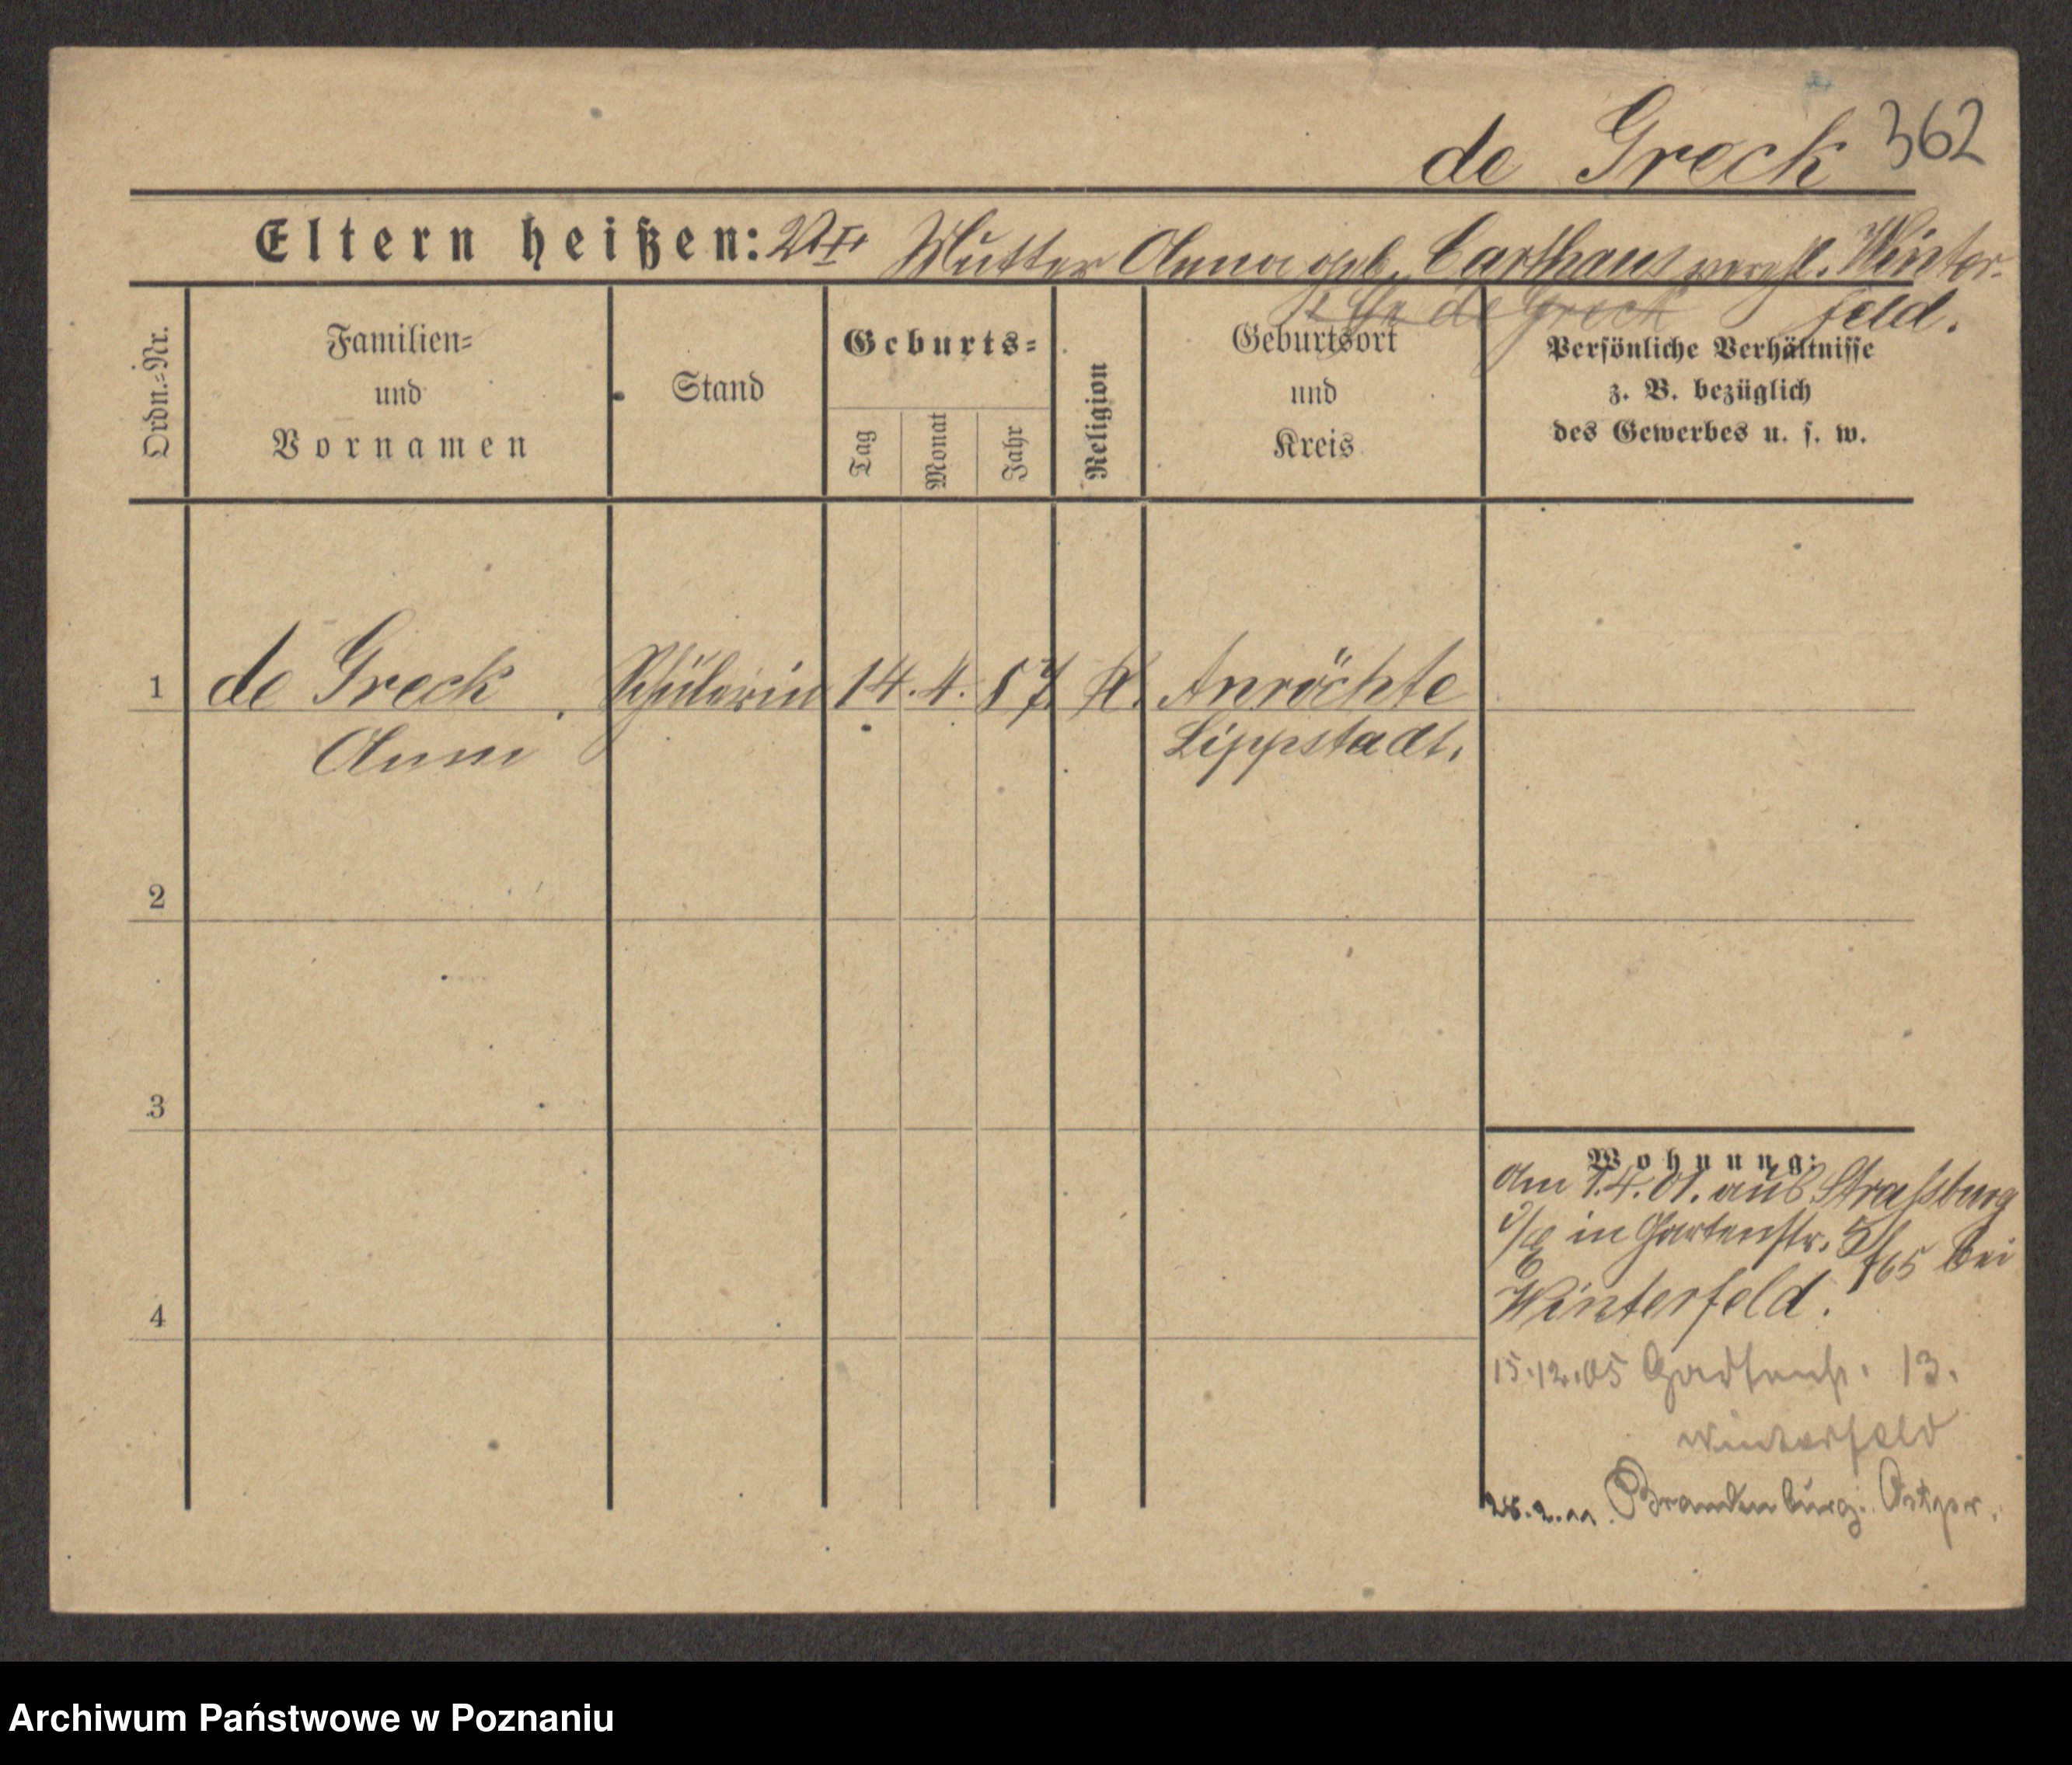 de Greck 362
Eltern heißen: Mutter Anna geb. Carthaus Winter-
de Greck feld.
Ordn.=Nr.
Familien=
und
Vornamen
Stand
Geburts=
Tag
Monat
Jahr
Religion
Geburtsort
und
Kreis
Persönliche Verhältnisse
z. B. bezüglich
des Gewerbes u. s. w.
1 de Greck Schülerin 14. 4. 87 K. Anröchte
Lippstadt.
2
3
4
Wohnung:
Am 1.4.01. aus Strassburg
i/E in Gartenstr. bei
Winterfeld.
15.12.05 13.
Winterfeld
Brandenburg Ostpr.
Archiwum Państwowe w Poznaniu